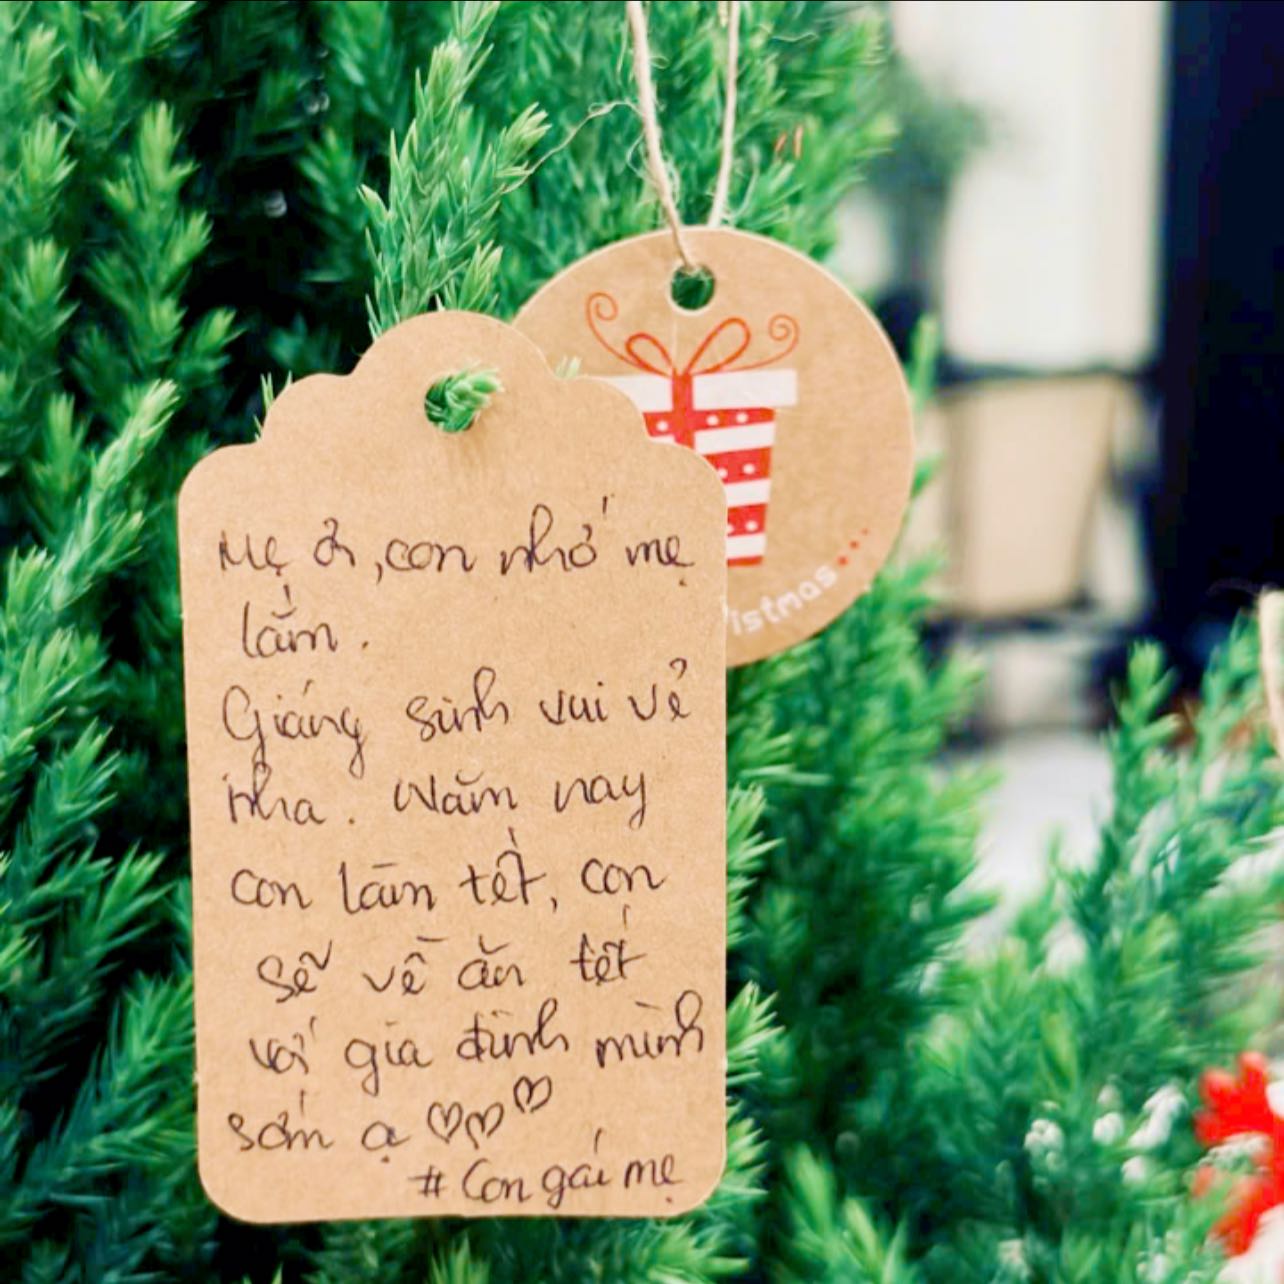 Mẹ ơi, con nhớ mẹ
lắm.
Giáng sinh vui vẻ
nha. Năm nay
con làm tết, con
sẽ về ăn tết
với gia đình mình
sớm ạ ♡♡♡
#Con gái mẹ
istmas...